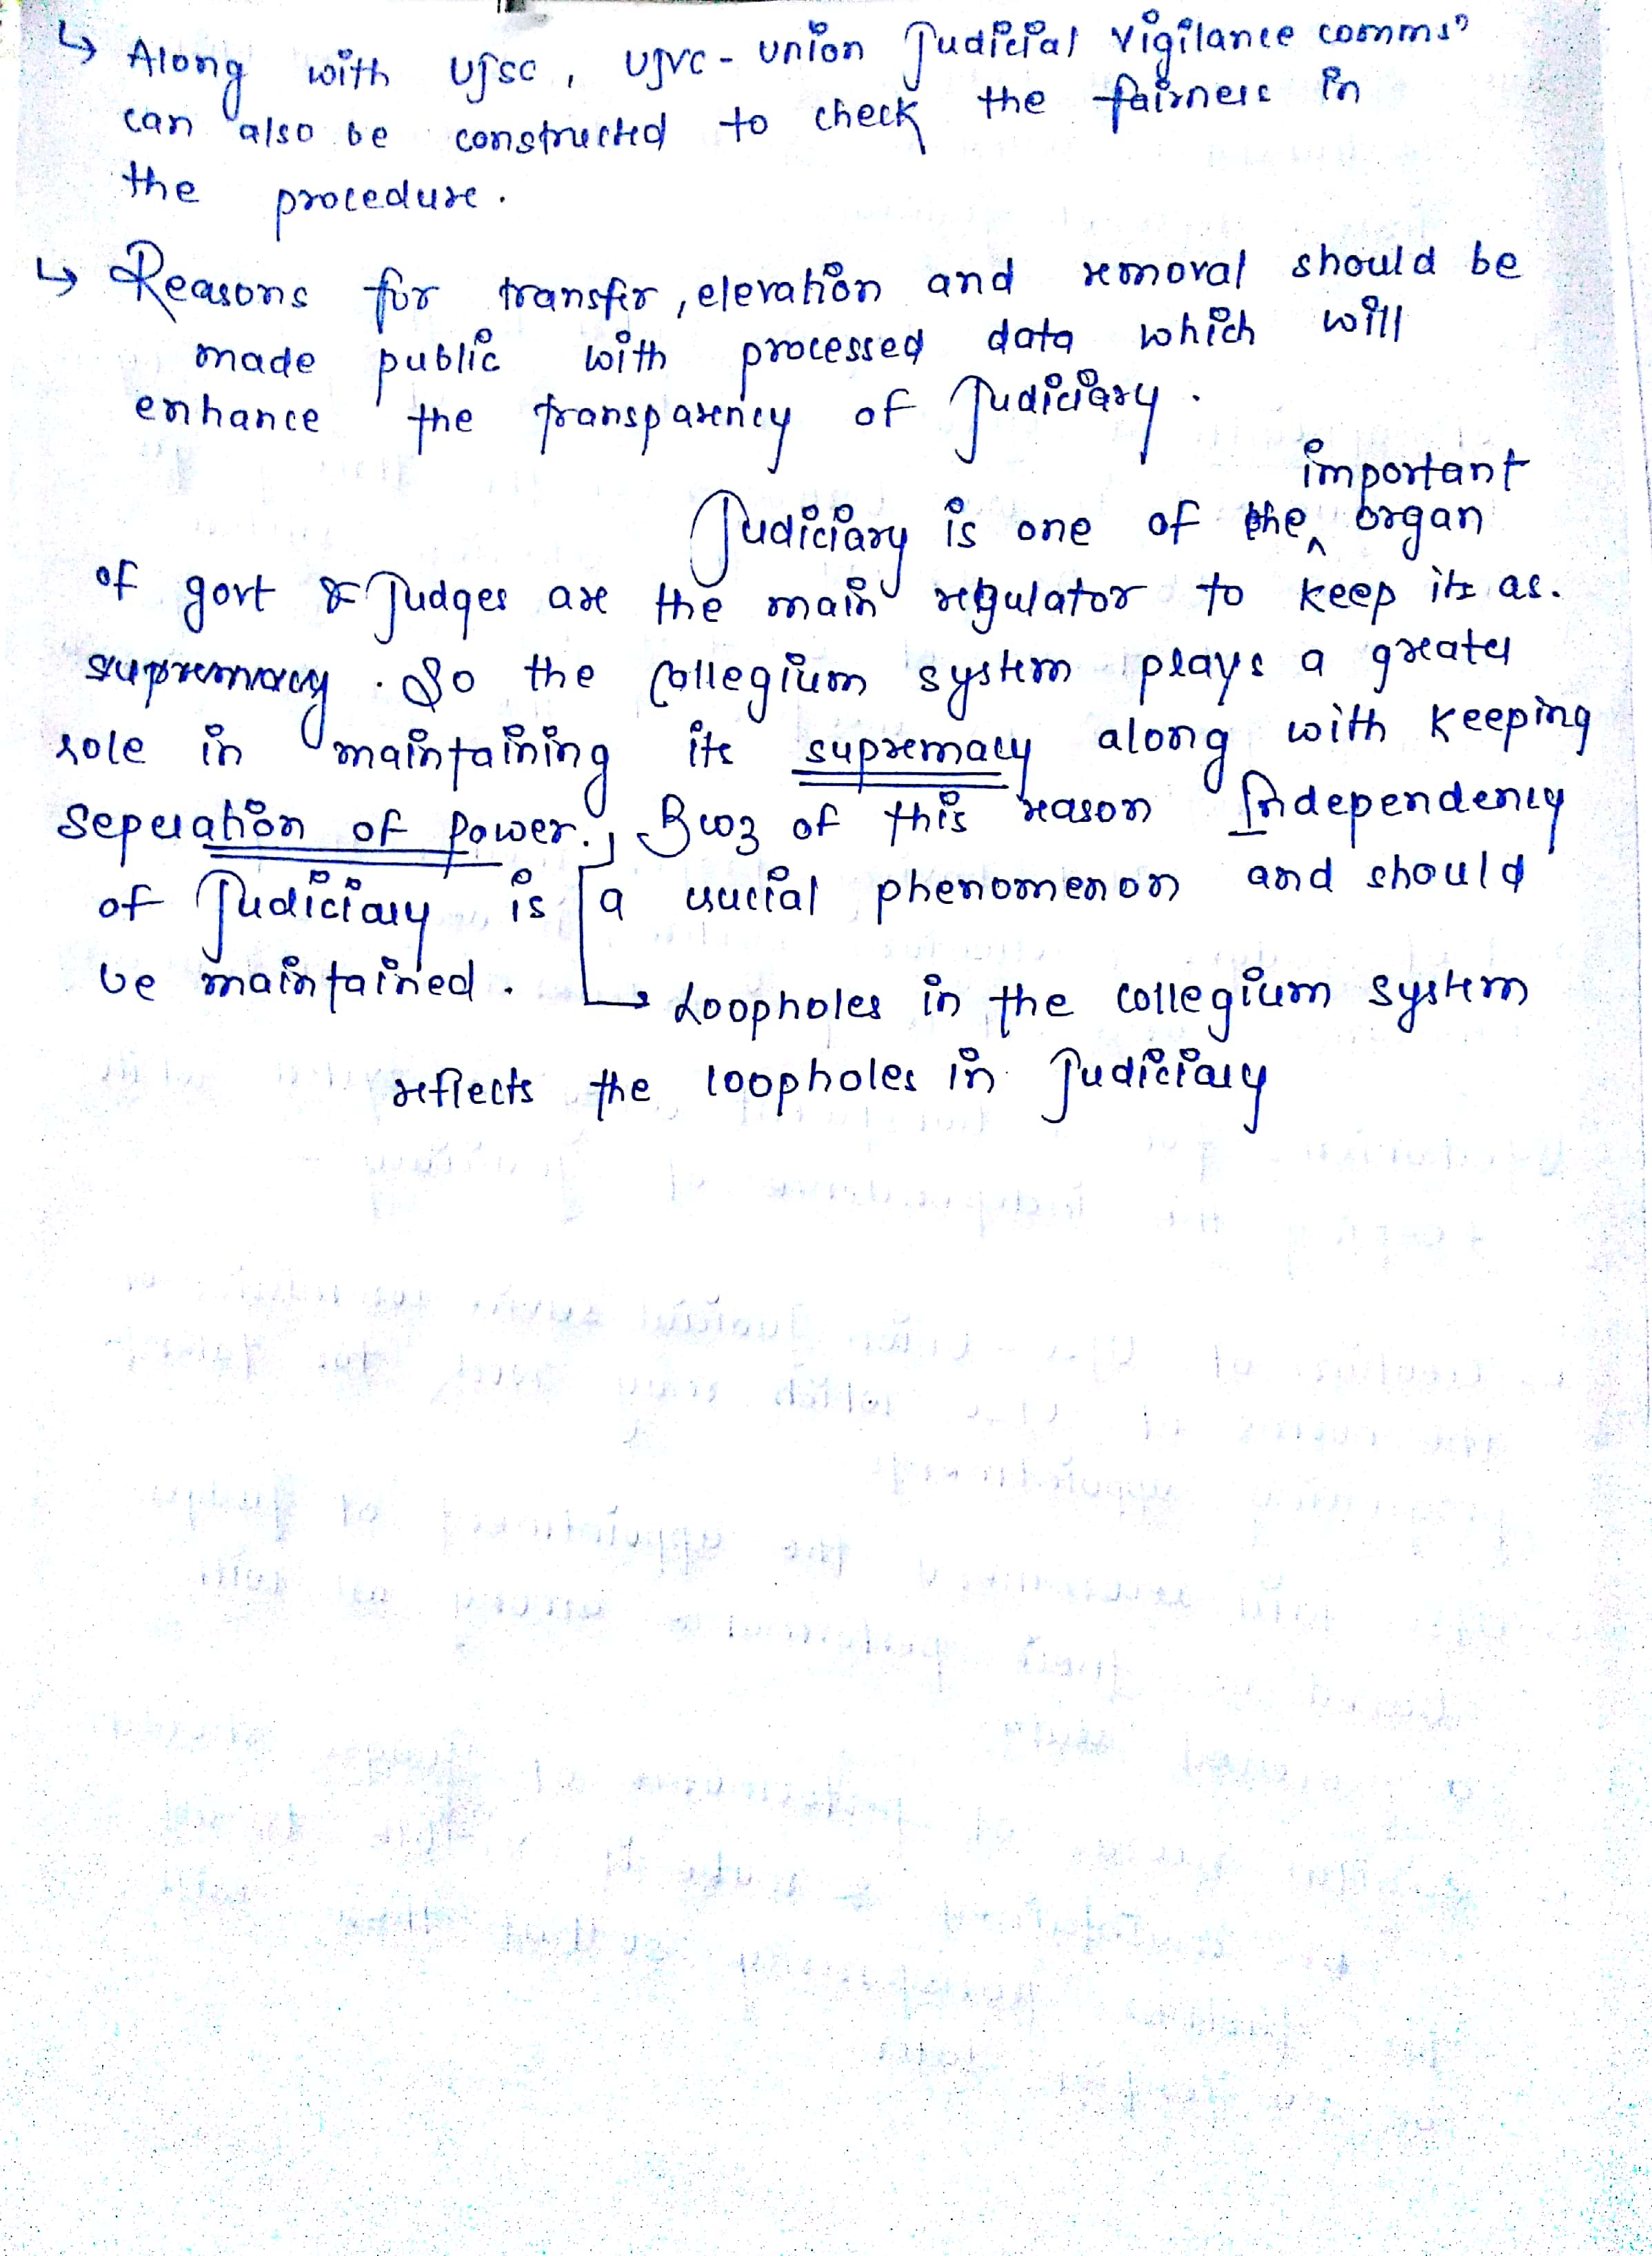 ↳ Along with UJSC, UJVC - Union Judicial Vigilance commsn
can also be constructed to check the fairness in
the procedure.
↳ Reasons for transfer, elevation and removal should be
made public with processed data which will
enhance the transparency of Judiciary.
important
Judiciary is one of the ^ organ
of govt & Judges are the main regulator to keep its as.
supremacy. So the collegium system plays a greater
role in maintaining its supremacy along with keeping
Seperation of Power. Bcoz of this reason Independency
of Judiciary is a crucial phenomenon and should
be maintained.
↳ Loopholes in the collegium system
reflects the loopholes in Judiciary